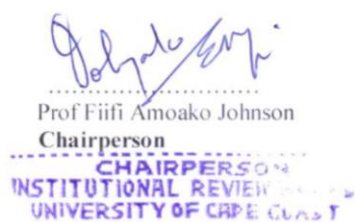 Prof Fiifi Amoako Johnson
Chairperson
CHAIRPERSON
INSTITUTIONAL REVIEW
UNIVERSITY OF CAPE COAST